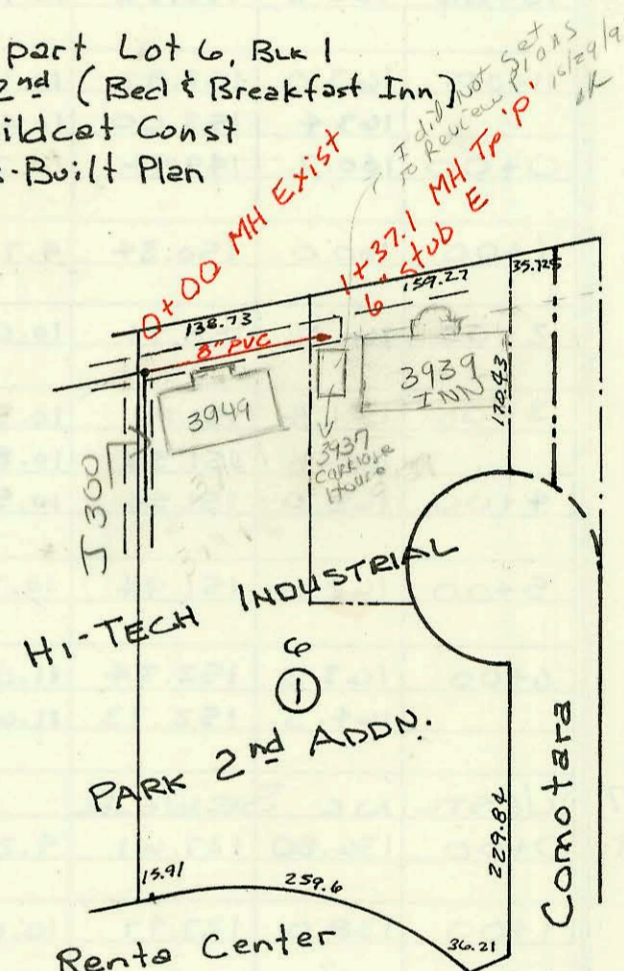 part Lot 6, Blk 1
2nd (Bed & Breakfast Inn)
ildcat Const
s-Built Plan
I did not get
to Review Plans
6/29/9
0+00 MH Exist
1+37.1 MH Tp 'P'
6" stub E
138.73
159.27
35.725
8" PVC
3949
3939
INN
170.43
3937
Carriage
House
J300
HI-TECH INDUSTRIAL
6
1
PARK 2nd ADDN.
Comotara
229.84
15.91
259.6
36.21
Renta Center